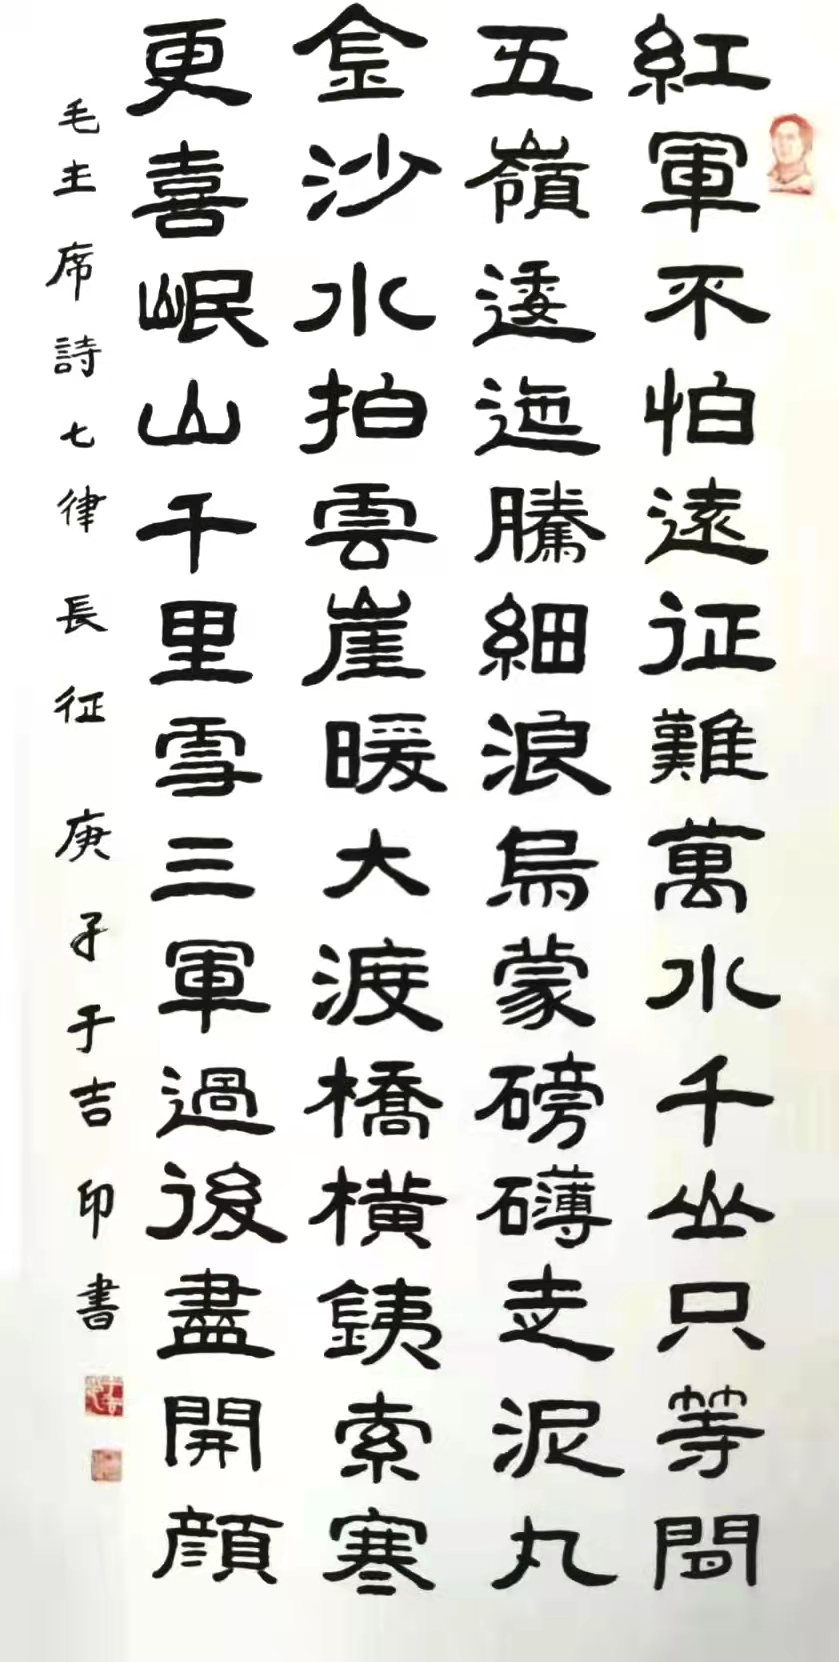 紅軍不怕遠征難萬水千山只等閒
五嶺逶迤騰細浪烏蒙磅礴走泥丸
金沙水拍雲崖暖大渡橋橫銕索寒
更喜岷山千里雪三軍過後盡開顔
毛主席詩七律長征 庚子于吉印書